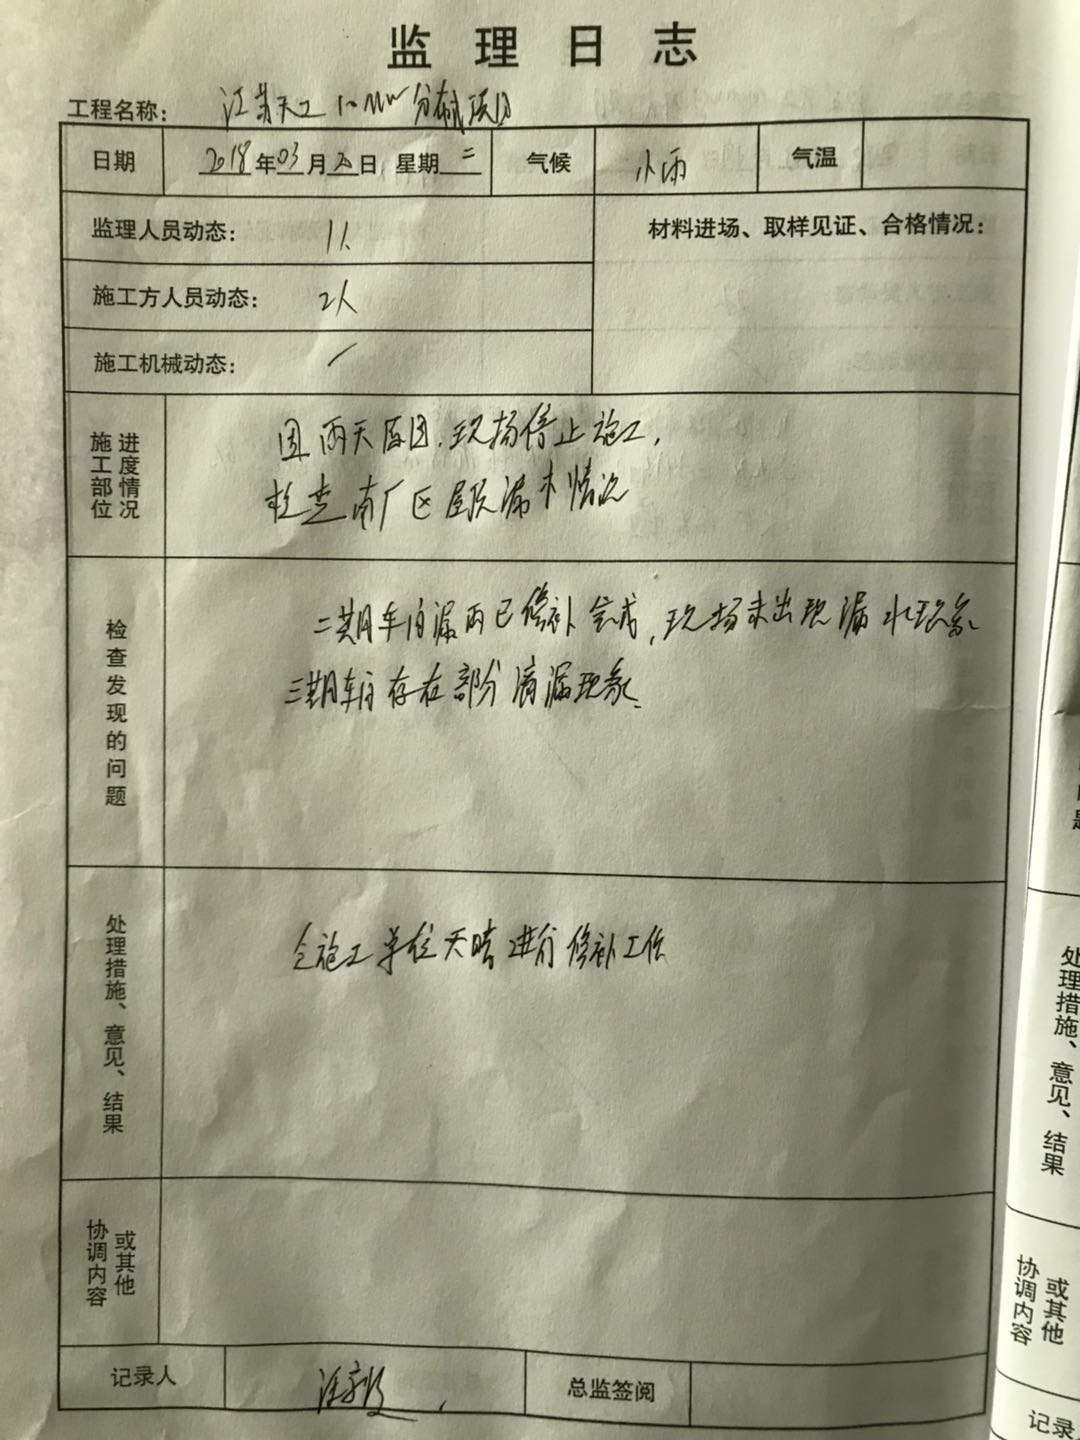 监理日志
工程名称: 江苏天工10MW分布式项目
日期 2018年03月20日 星期二 气候 小雨 气温
监理人员动态: 1人 材料进场、取样见证、合格情况:
施工方人员动态: 2人
施工机械动态: /
施工部位
进度情况
因雨天原因,现场停止施工,
检查南厂区屋顶漏水情况
检查发现的问题
二期车间漏雨已修补完成,现场未出现漏水现象
三期车间存在部分滴漏现象.
处理措施、意见、结果
令施工单位天晴进行修补工作
协调内容
或其他
记录人 总监签阅
题
处理措施、意见、结果
协调内容
或其他
记录